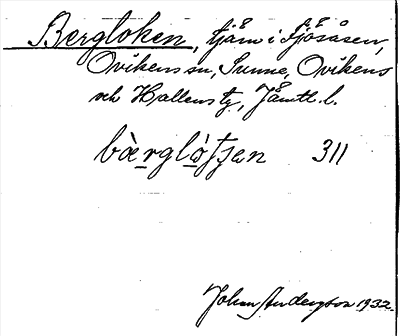 Bergloken, tjärn i Fjösåsen,
Ovikens sn, Sunne, Ovikens
och Hallens tg, Jämtl. l.
bàrglòtjen 311
Johan Andersson 1932.